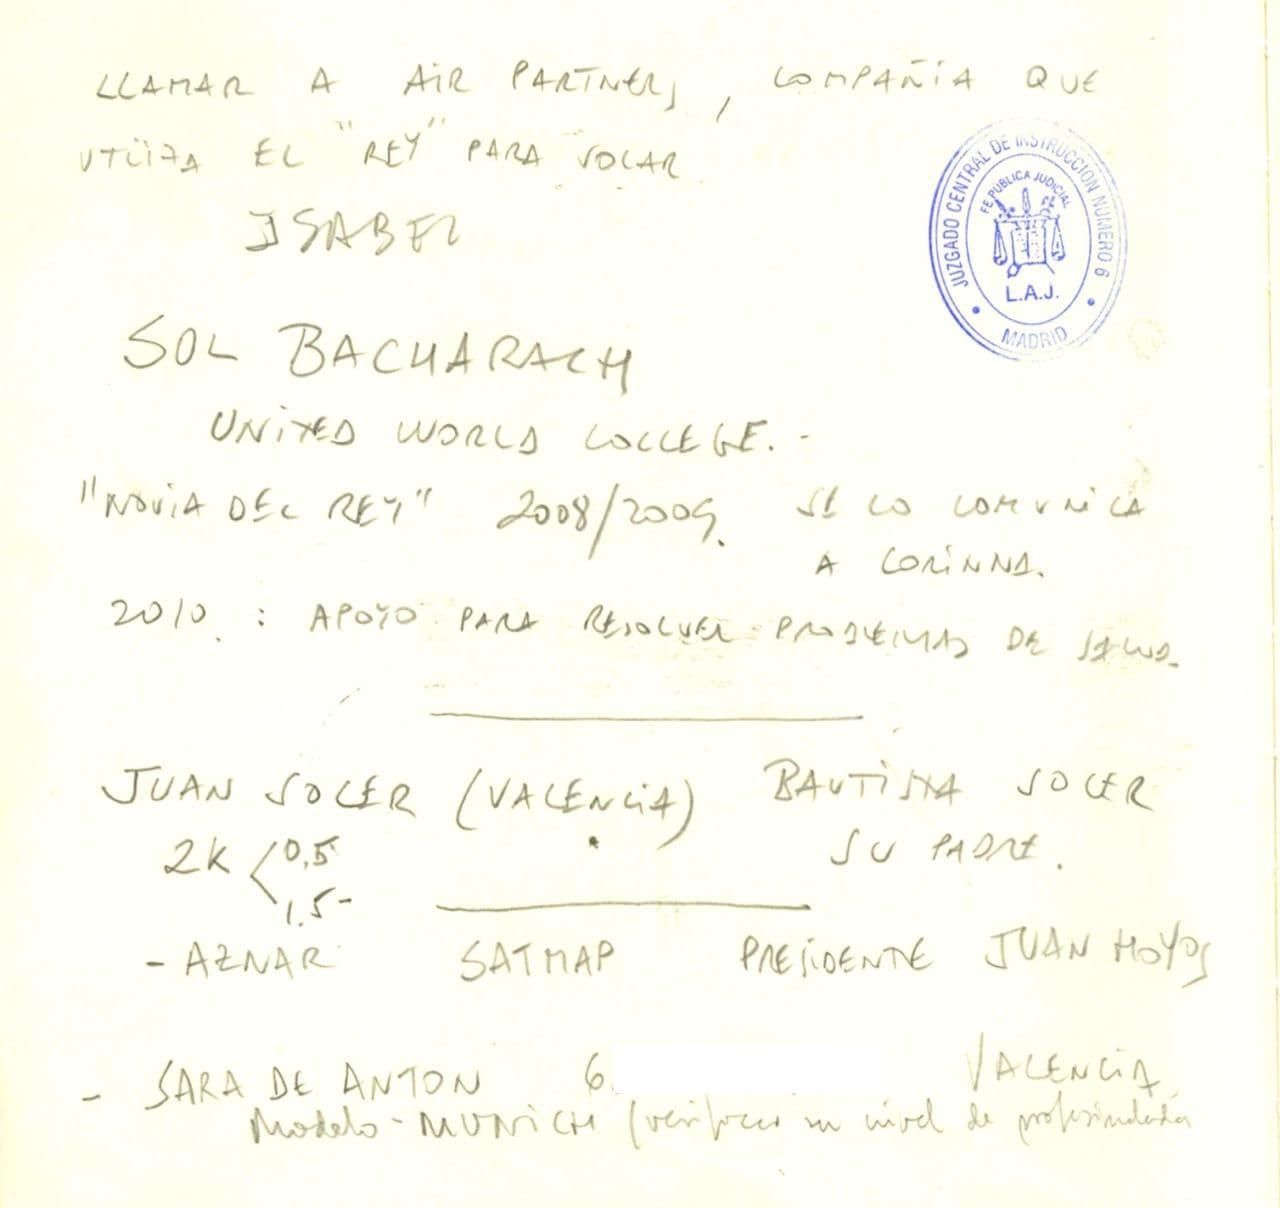 LLAMAR A AIR PARTNERS, COMPAÑÍA QUE
UTILIZA EL "REY" PARA VOLAR
ISABEL
JUZGADO CENTRAL DE INSTRUCCION NUMERO 6
FE PUBLICA JUDICIAL
L.A.J.
MADRID
SOL BACHARACH
UNITED WORLD COLLEGE.-
"NOVIA DEL REY" 2008/2009. SE LO COMUNICA
A CORINNA.
2010. : APOYO PARA RESOLVER PROBLEMAS DE SALUD.
JUAN SOLER (VALENCIA) BAUTISTA SOLER
2K 0,5 SU PADRE.
1.5-
- AZNAR SATMAP PRESIDENTE JUAN HOYOS
- SARA DE ANTON 6 VALENCIA
Modelo - MUNICH (verificar su nivel de